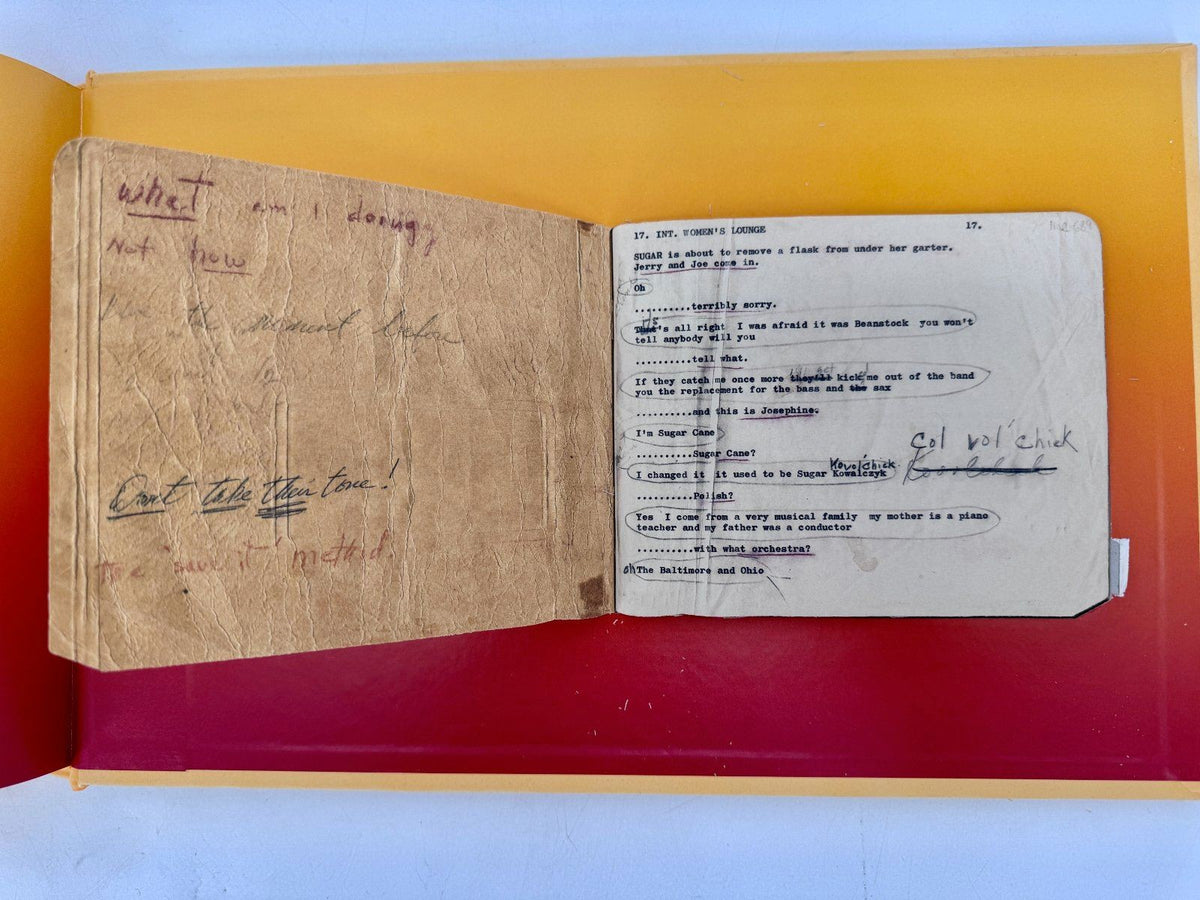 what am I doing
Not how
the moment before
Don't take their tone!
the 'save it' method
17. INT. WOMEN'S LOUNGE 17.
SUGAR is about to remove a flask from under her garter.
Jerry and Joe come in.
Oh
..........terribly sorry.
That's all right I was afraid it was Beanstock you won't
tell anybody will you
..........tell what.
If they catch me once more they'll kick me out of the band
you the replacement for the bass and the sax
..........and this is Josephine.
I'm Sugar Cane
..........Sugar Cane?
Kovol'chick
I changed it it used to be Sugar Kowalczyk
Col vol'chick
..........Polish?
Yes I come from a very musical family my mother is a piano
teacher and my father was a conductor
..........with what orchestra?
oh The Baltimore and Ohio